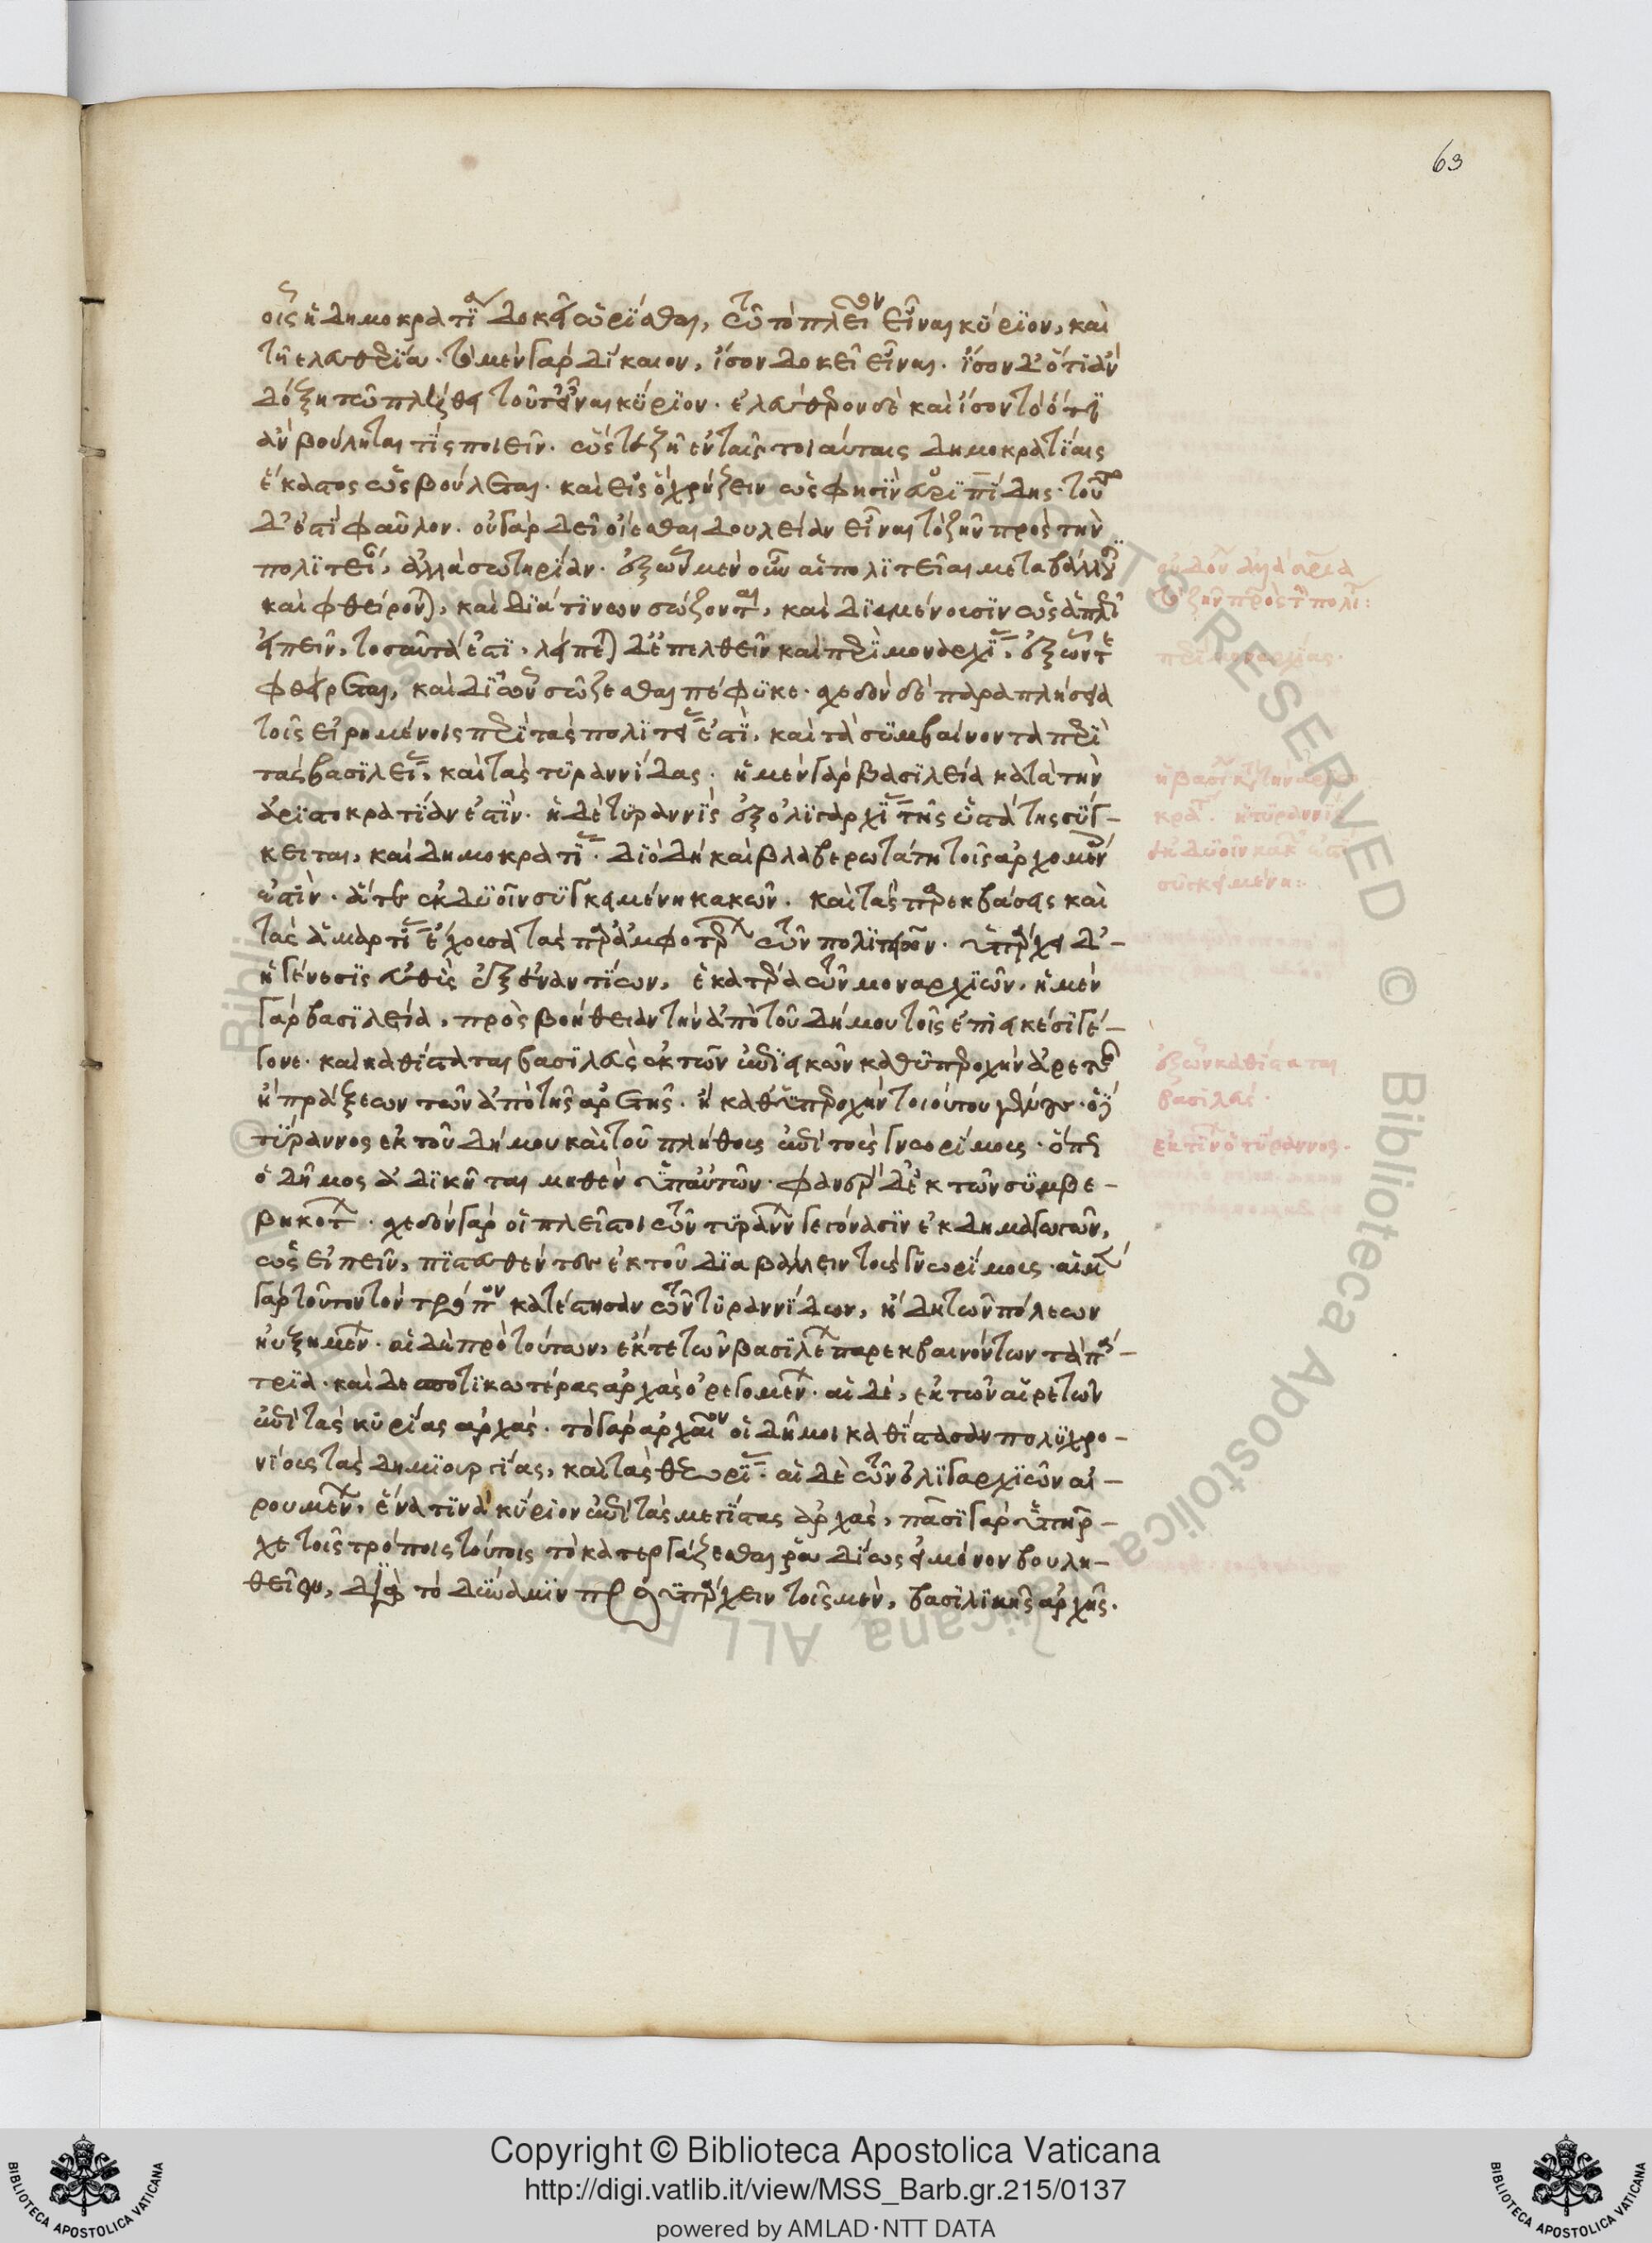 63
οις ἡ δημοκρατία δοκεῖ ὡρίσθαι, τῷ τὸ πλεῖον εἶναι κύριον, καὶ
τῇ ἐλευθερία. τὸ μὲν γὰρ δίκαιον, ἴσον δοκεῖ εἶναι. ἴσον δ' ὅτι ἂν
δόξη τῷ πλήθει τοῦτ' εἶναι κύριον. ἐλεύθερον δὲ καὶ ἴσον τὸ ὅτι
ἂν βούληται τίς ποιεῖν. ὥστε ζῆ ἐν ταῖς τοιαύταις δημοκρατίαις
ἕκαστος ὡς βούλεται. καὶ εἰς ὃ χρήζειν ὡς φησὶν εὐριπίδης. τοῦτο
δ' ἐστὶ φαῦλον. οὐ γὰρ δεῖ οἴεσθαι δουλείαν εἶναι τὸ ζῆν πρὸς τὴν
πολιτείαν, ἀλλὰ σωτηρίαν. ἐξ ὧν μὲν οὖν αἱ πολιτεῖαι μεταβάλλουσι
καὶ φθείρονται, καὶ διὰ τίνων σώζονται, καὶ διαμένουσιν ὡς ἁπλῶς
εἰπεῖν, τοσαῦτά ἐστι. λείπεται δ' ἐπελθεῖν καὶ περὶ μοναρχίας, ἐξ ὧν τε
φθείρεται, καὶ δι' ὧν σώζεσθαι πέφυκε. σχεδὸν δὲ παραπλήσια
τοῖς εἰρημένοις περὶ τὰς πολιτείας ἐστὶ, καὶ τὰ συμβαίνοντα περὶ
τὰς βασιλείας, καὶ τὰς τυραννίδας. ἡ μὲν γὰρ βασιλεία κατὰ τὴν
ἀριστοκρατίαν ἐστίν. ἡ δὲ τυραννὶς ἐξ ὀλιγαρχίας τῆς ὑστάτης σύγ-
κειται, καὶ δημοκρατίας. διὸ δὴ καὶ βλαβερωτάτη τοῖς ἀρχομένοις
ἐστὶν. ἅτε ἐκ δυοῖν συγκειμένη κακῶν. καὶ τὰς παρεκβάσεις καὶ
τὰς ἁμαρτίας ἔχουσα τὰς παρ' ἀμφοτέρων τῶν πολιτειῶν. ὑπάρχει δ'-
ἡ γένεσις εὐθὺς ἐξ ἐναντίων, ἑκατέρα τῶν μοναρχιῶν. ἡ μὲν
γὰρ βασιλεία, πρὸς βοήθειαν τὴν ἀπὸ τοῦ δήμου τοῖς ἐπιεικέσι γέ-
γονε. καὶ καθίσταται βασιλεὺς ἐκ τῶν ἐπιεικῶν καθ' ὑπεροχὴν ἀρετῆς
ἢ πράξεων τῶν ἀπὸ τῆς ἀρετῆς. ἢ καθ' ὑπεροχὴν τοιούτου γένους. ὁ δὲ
τύραννος ἐκ τοῦ δήμου καὶ τοῦ πλήθους ἐπὶ τοὺς γνωρίμους. ὅπως
ὁ δῆμος ἀδικῆται μηθὲν ὑπ' αὐτῶν. φανερὸν δ' ἐκ τῶν συμβε-
βηκότων. σχεδὸν γὰρ οἱ πλεῖστοι τῶν τυράννων γεγόνασιν ἐκ δημαγωγῶν,
ὡς εἰπεῖν, πιστευθέντων ἐκ τοῦ διαβάλλειν τοὺς γνωρίμους. αἱ μὲν
γὰρ τοῦτον τὸν τρόπον κατέστησαν τῶν τυραννίδων, ἤδη τῶν πόλεων
ηὐξημένων. αἱ δὲ πρὸ τούτων, ἐκ τε τῶν βασιλέων παρεκβαινόντων τὰ πά-
τρια. καὶ δεσποτικωτέρας ἀρχὰς ὀρεγομένων. αἱ δὲ, ἐκ τῶν αἱρετῶν
ἐπὶ τὰς κυρίας ἀρχάς. τὸ γὰρ ἀρχαῖον οἱ δῆμοι καθίστασαν πολυχρο-
νίους τὰς δημιουργίας, καὶ τὰς θεωρίας. αἱ δὲ τῶν ὀλιγαρχιῶν αἱ-
ρουμένων, ἕνα τινὰ κύριον ἐπὶ τὰς μεγίστας ἀρχάς, πᾶσι γὰρ ὑπῆρ-
χε τοῖς τρόποις τούτοις τὸ κατεργάζεσθαι ῥαδίως εἰ μόνον βουλη-
θεῖεν, διὰ τὸ δύναμιν προϋπάρχειν τοῖς μὲν, βασιλικῆς ἀρχῆς.
τὸ ζῆν πρὸς τὴν πολι:
περὶ μοναρχίας.
ἐξ ὧν καθίσταται
βασιλεύς.
ἐκ τίνων ὁ τύραννος.
Copyright © Biblioteca Apostolica Vaticana
http://digi.vatlib.it/view/MSS_Barb.gr.215/0137
powered by AMLAD·NTT DATA
BIBLIOTECA APOSTOLICA VATICANA
BIBLIOTECA APOSTOLICA VATICANA